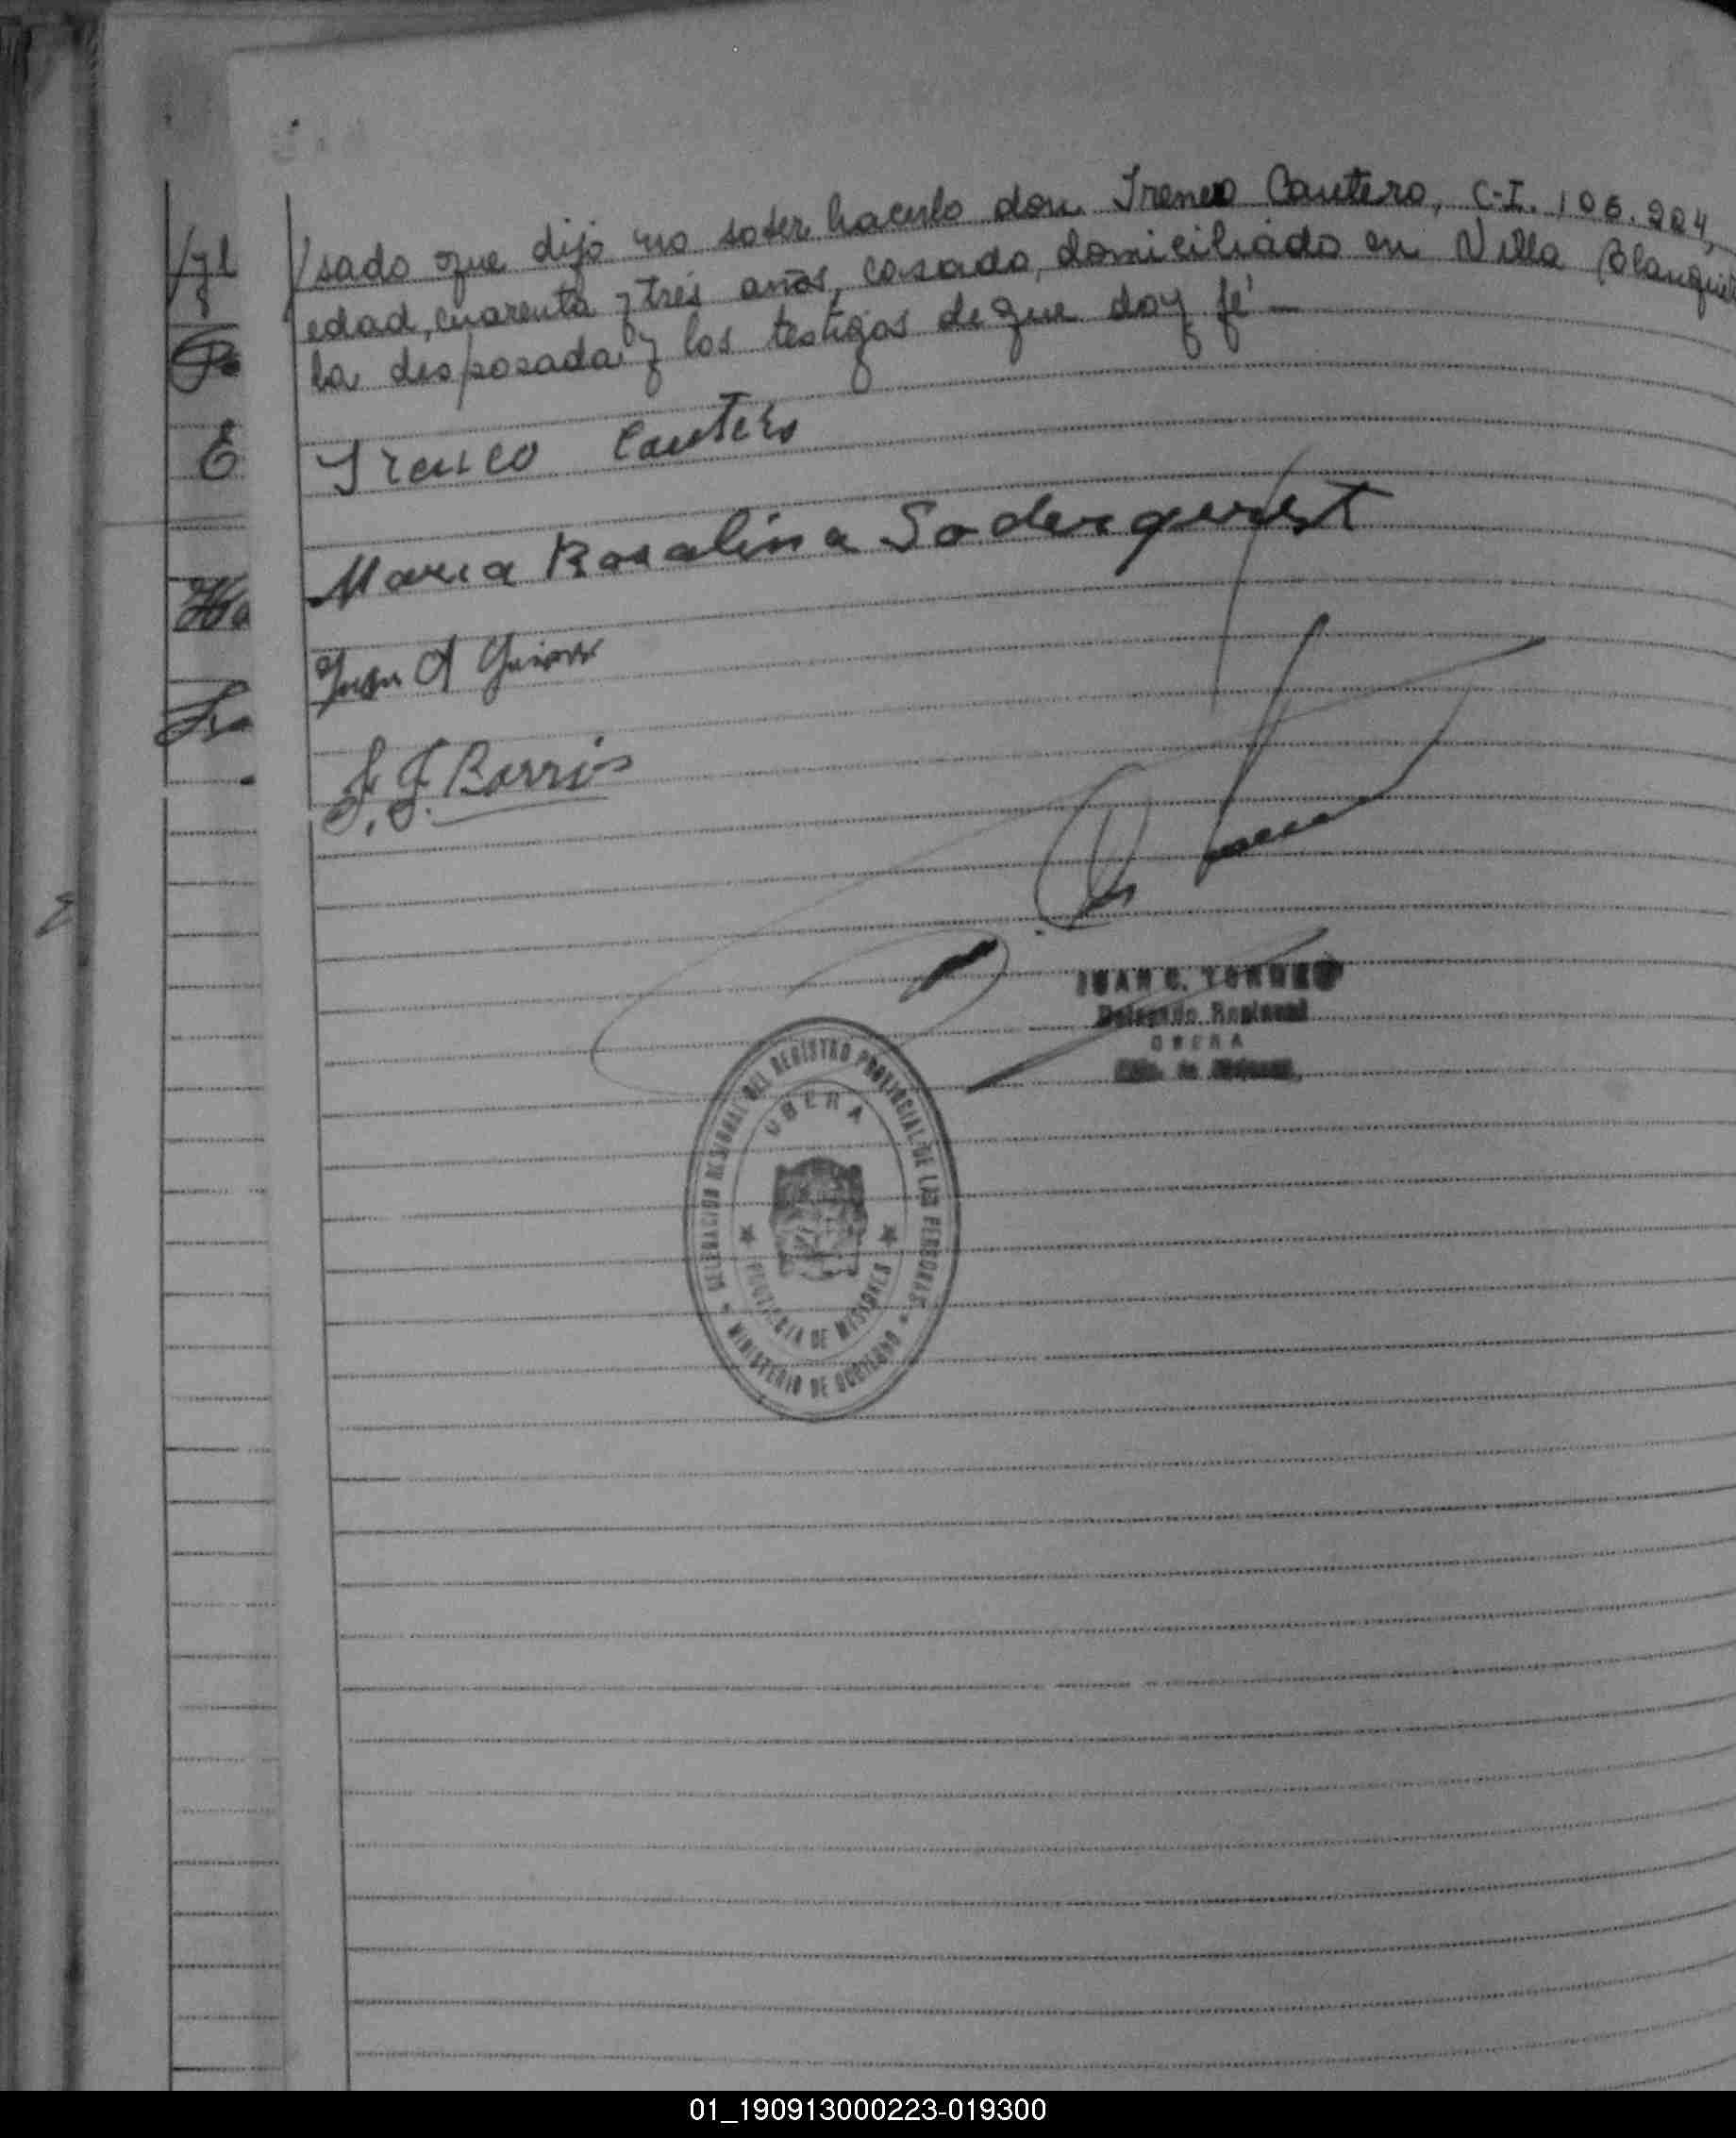 /sado que dijo no saber hacerlo don Ireneo Cantero, C.I. 106.224,
edad, cuarenta y tres años, casado, domiciliado en Villa Blanquita
la desposada y los testigos de que doy fé —
Ireneo Cantero
Maria Rosalina Soderquist
Juan A
J. J. Barrios
JUAN C. TORRES
Delegado Regional
OBERA
DELEGACION REGIONAL DEL REGISTRO PROVINCIAL DE LAS PERSONAS
OBERA
PROVINCIA DE MISIONES
MINISTERIO DE GOBIERNO
01_190913000223-019300